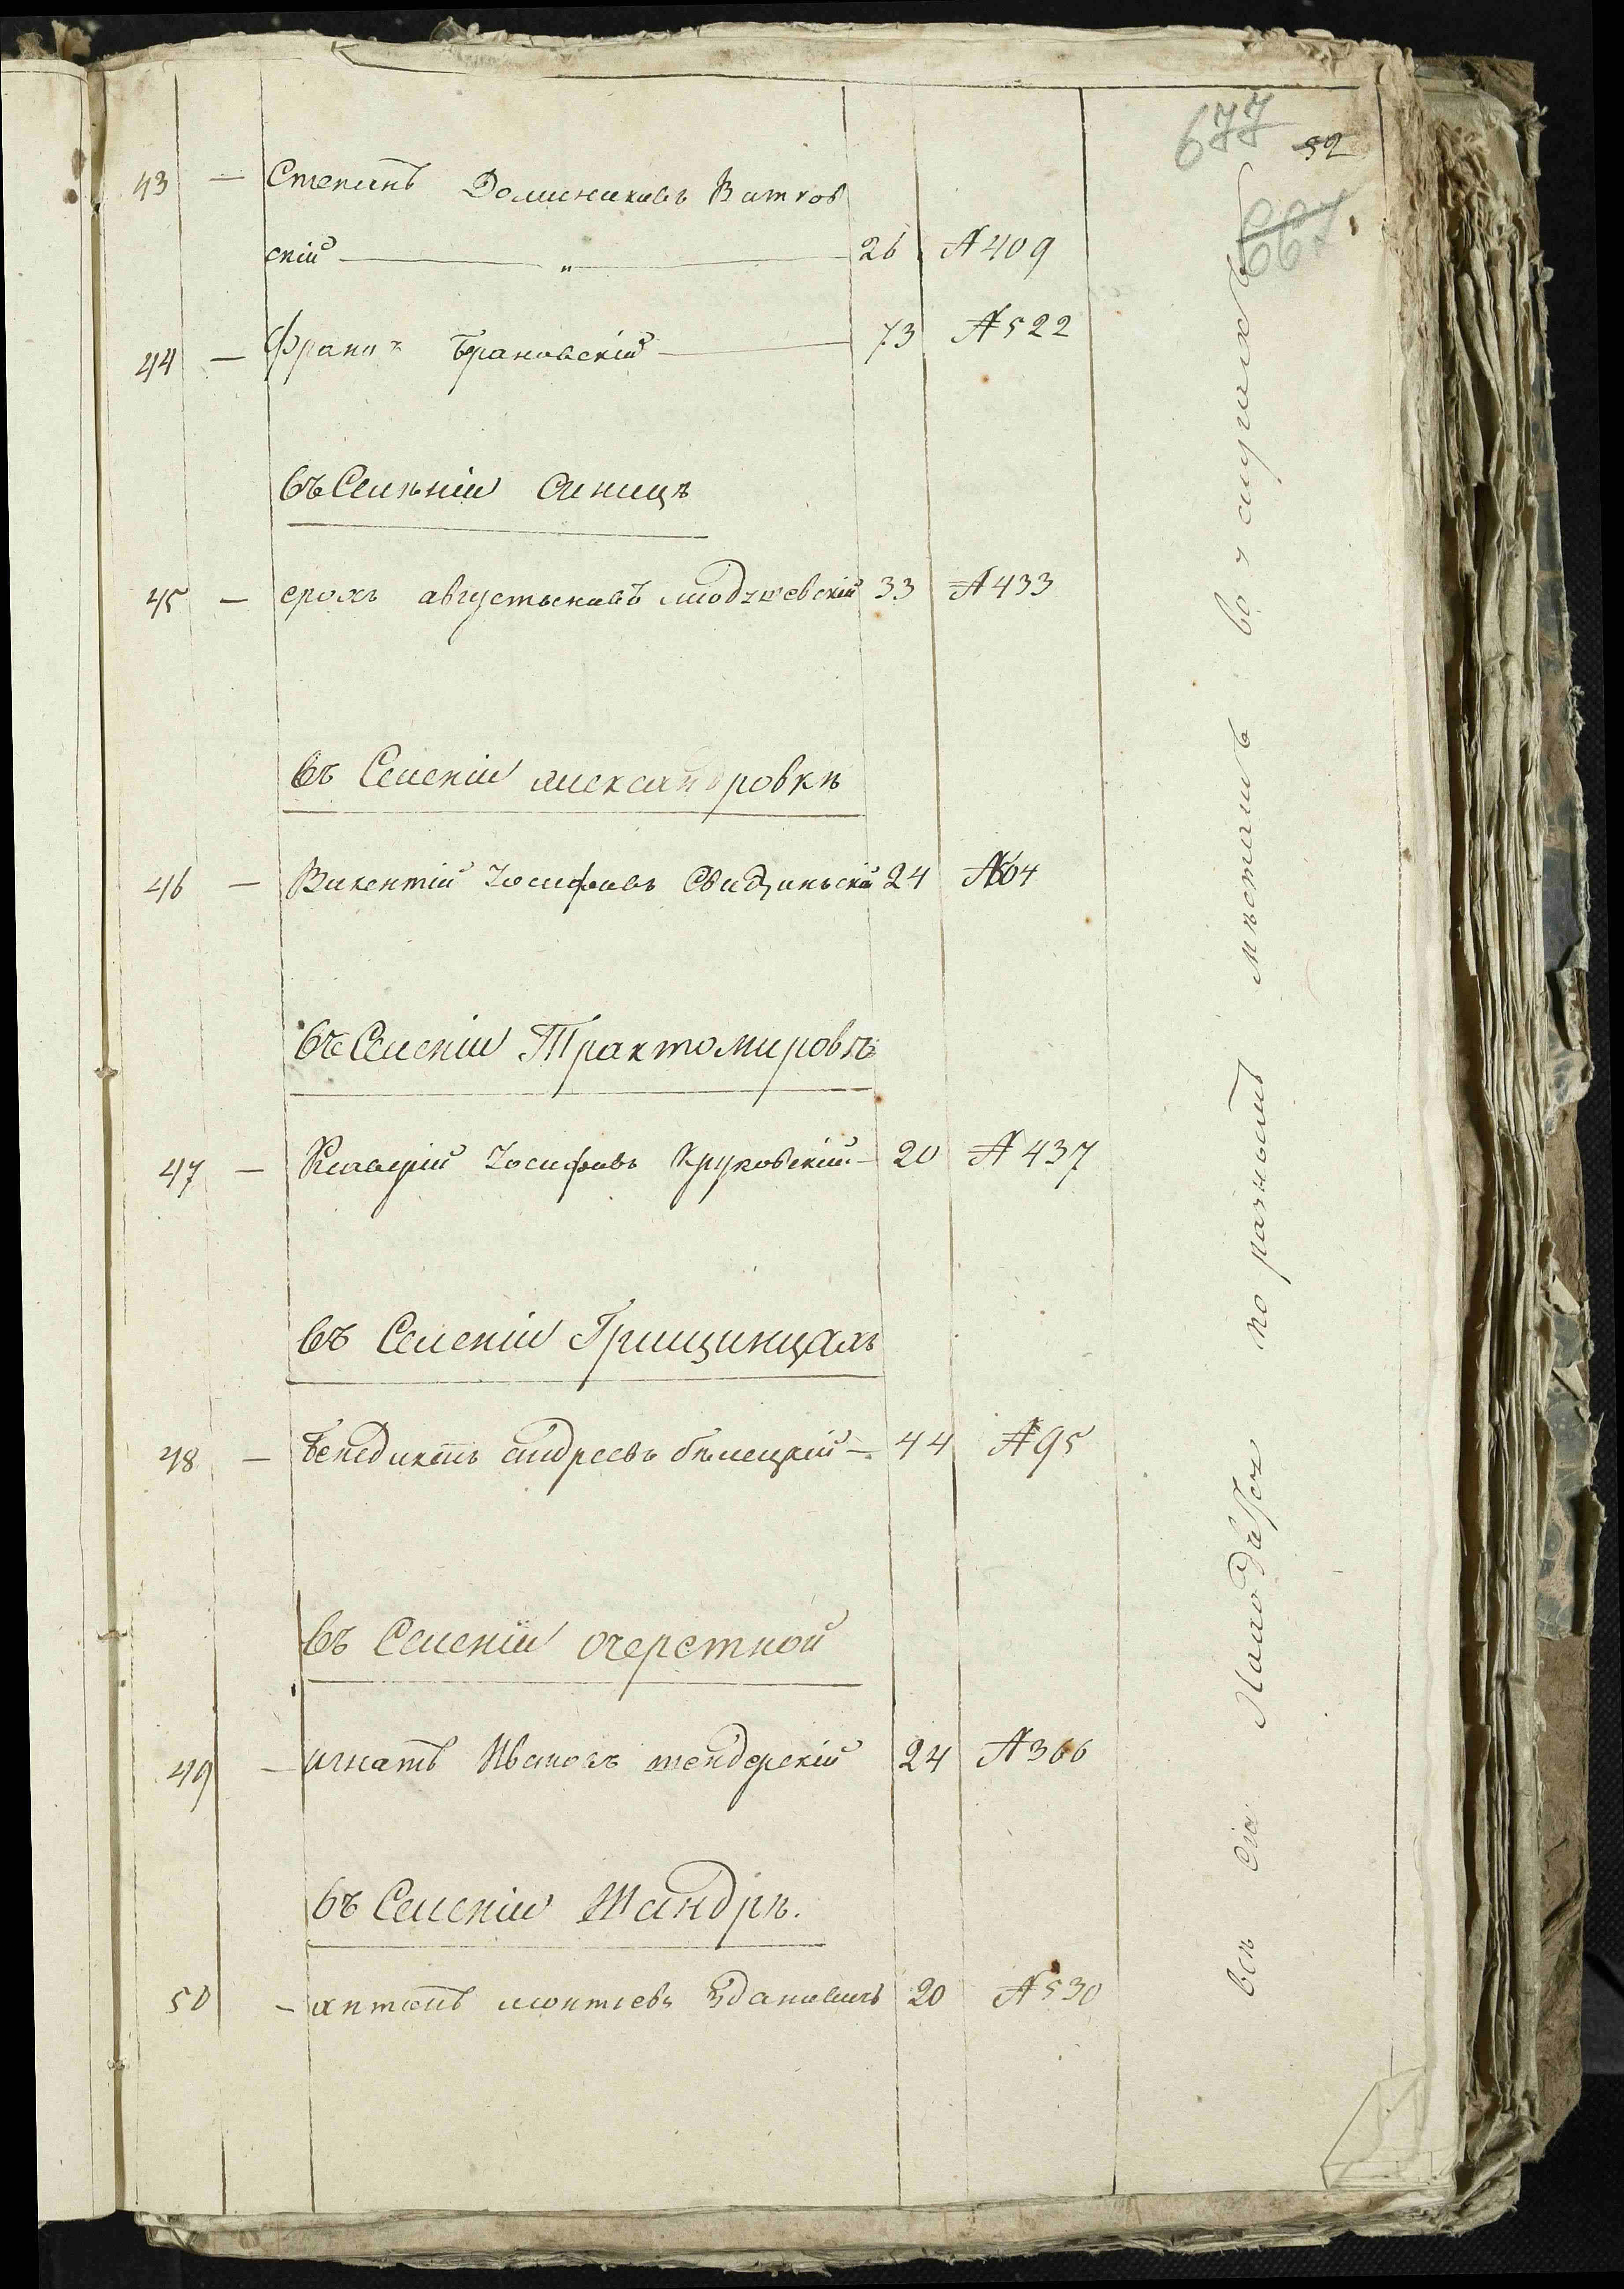 677
52
667
43 — Степанъ Доминиковъ Витков
скій — „ — 26 № 409
44 — Франц Брановскій — 73 № 522
въ Селѣніи Синицѣ
45 — августыновъ 33 № 433
въ Селеніи александровкѣ
46 — Викентій Іосифовъ Свидзиньскій 24 № 64
въ Селеніи Трактомировѣ
47 — Ксаверій Іосифовъ Круковскій — 20 № 437
въ Селеніи Грищинцахъ
48 — Бенедиктъ андреевъ бѣлецкій — 44 № 95
въ Селеніи очеретной
49 — игнатъ Ивановъ тендерскій 24 № 366
въ Селеніи Шандрѣ.
50 — антонъ леонтіевъ Здановичъ 20 № 530
всѣ сіи находятся по разнымъ мѣстамъ во услугахъ